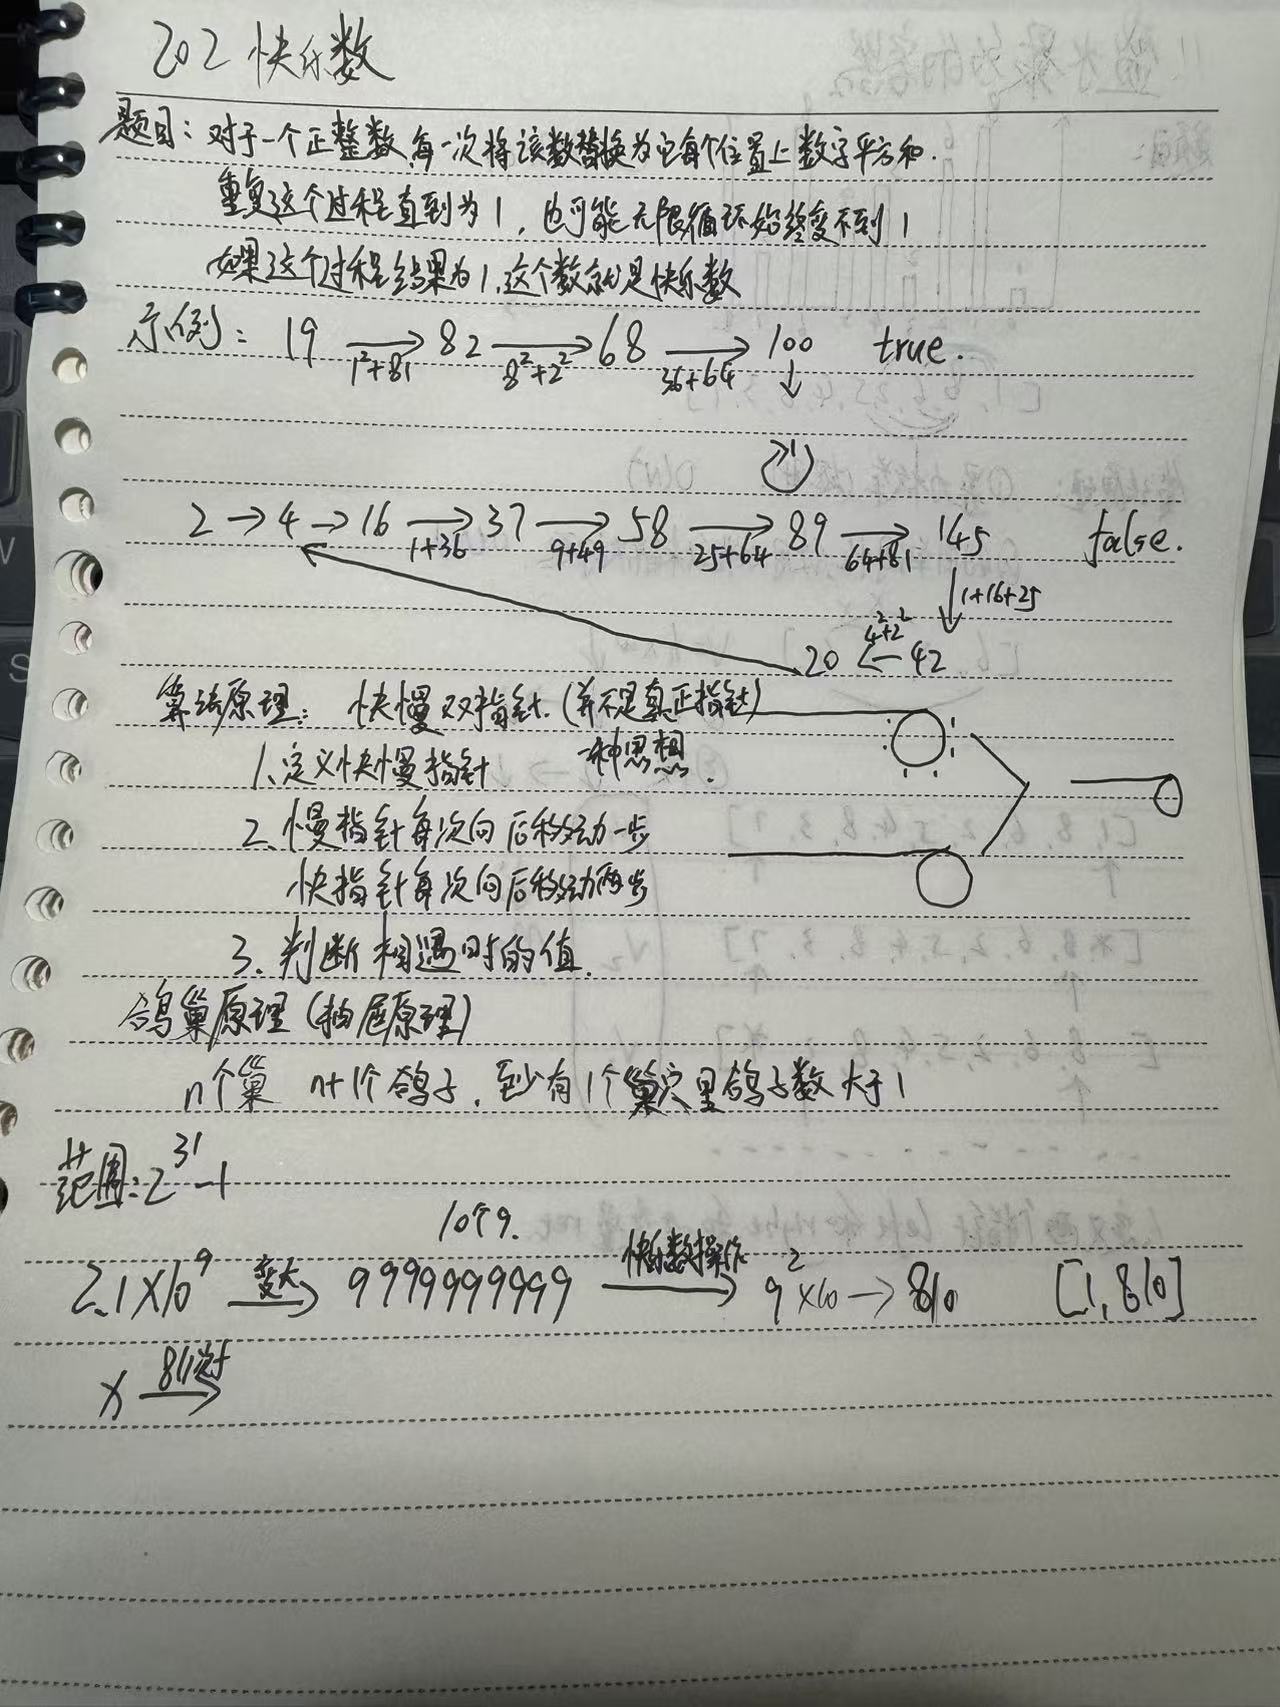 202 快乐数
题目：对于一个正整数，每一次将该数替换为它每个位置上数字平方和.
重复这个过程直到为1，也可能无限循环始终变不到1
如果这个过程结果为1，这个数就是快乐数
示例： 19 → 82 → 68 → 100 true.
1²+81 8²+2² 36+64 ↓
1
2 → 4 → 16 → 37 → 58 → 89 → 145 false.
1+36 9+49 25+64 64+81
↓ 1+16+25
4²+2²
20 ← 42
算法原理： 快慢双指针.（并不是真正指针）
1、定义快慢指针 一种思想.
2、慢指针每次向后移动一步
快指针每次向后移动两步
3、判断相遇时的值.
鸽巢原理（抽屉原理）
n个巢 n+1个鸽子，至少有1个巢穴里鸽子数大于1
范围：2³¹-1
10个9.
2.1×10⁹ 变大→ 9999999999 快乐数操作→ 9²×10 → 810 [1, 810]
x 811次→